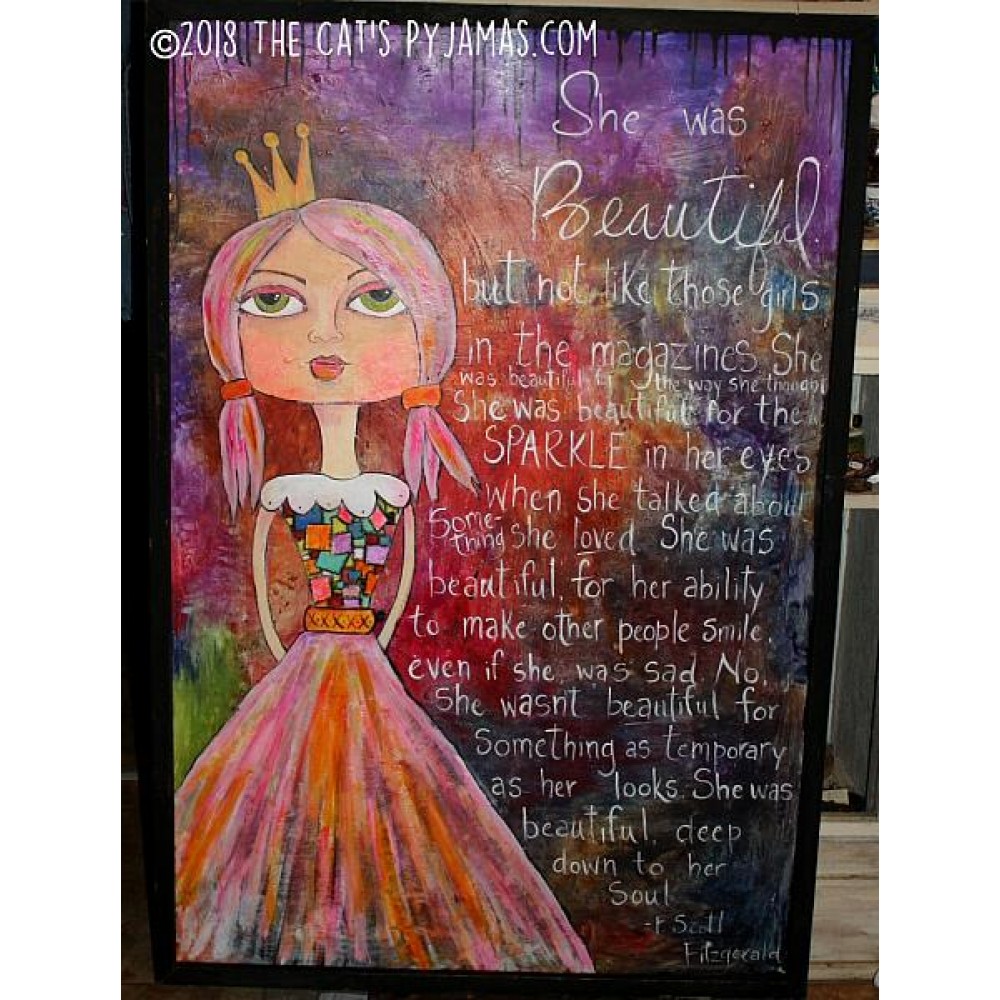 ©2018 THE CAT'S PYJAMAS.COM
She was
Beautiful.
but not like those girls
in the magazines. She
was beautiful for the way she thought
She was beautiful for the
SPARKLE in her eyes
when she talked about
Some-
thing she loved. She was
beautiful, for her ability
to make other people smile,
even if she was sad. No,
she wasn't beautiful for
something as temporary
as her looks. She was
beautiful, deep
down to her
Soul
-F Scott
Fitzgerald